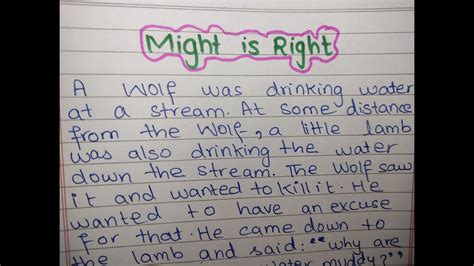 Might is Right
A Wolf was drinking water
at a stream. At some distance
from the Wolf, a little lamb
was also drinking the water
down the stream. The Wolf saw
it and wanted to kill it. He
wanted to have an excuse
for that. He came down to
the lamb and said: "why are
water muddy?"